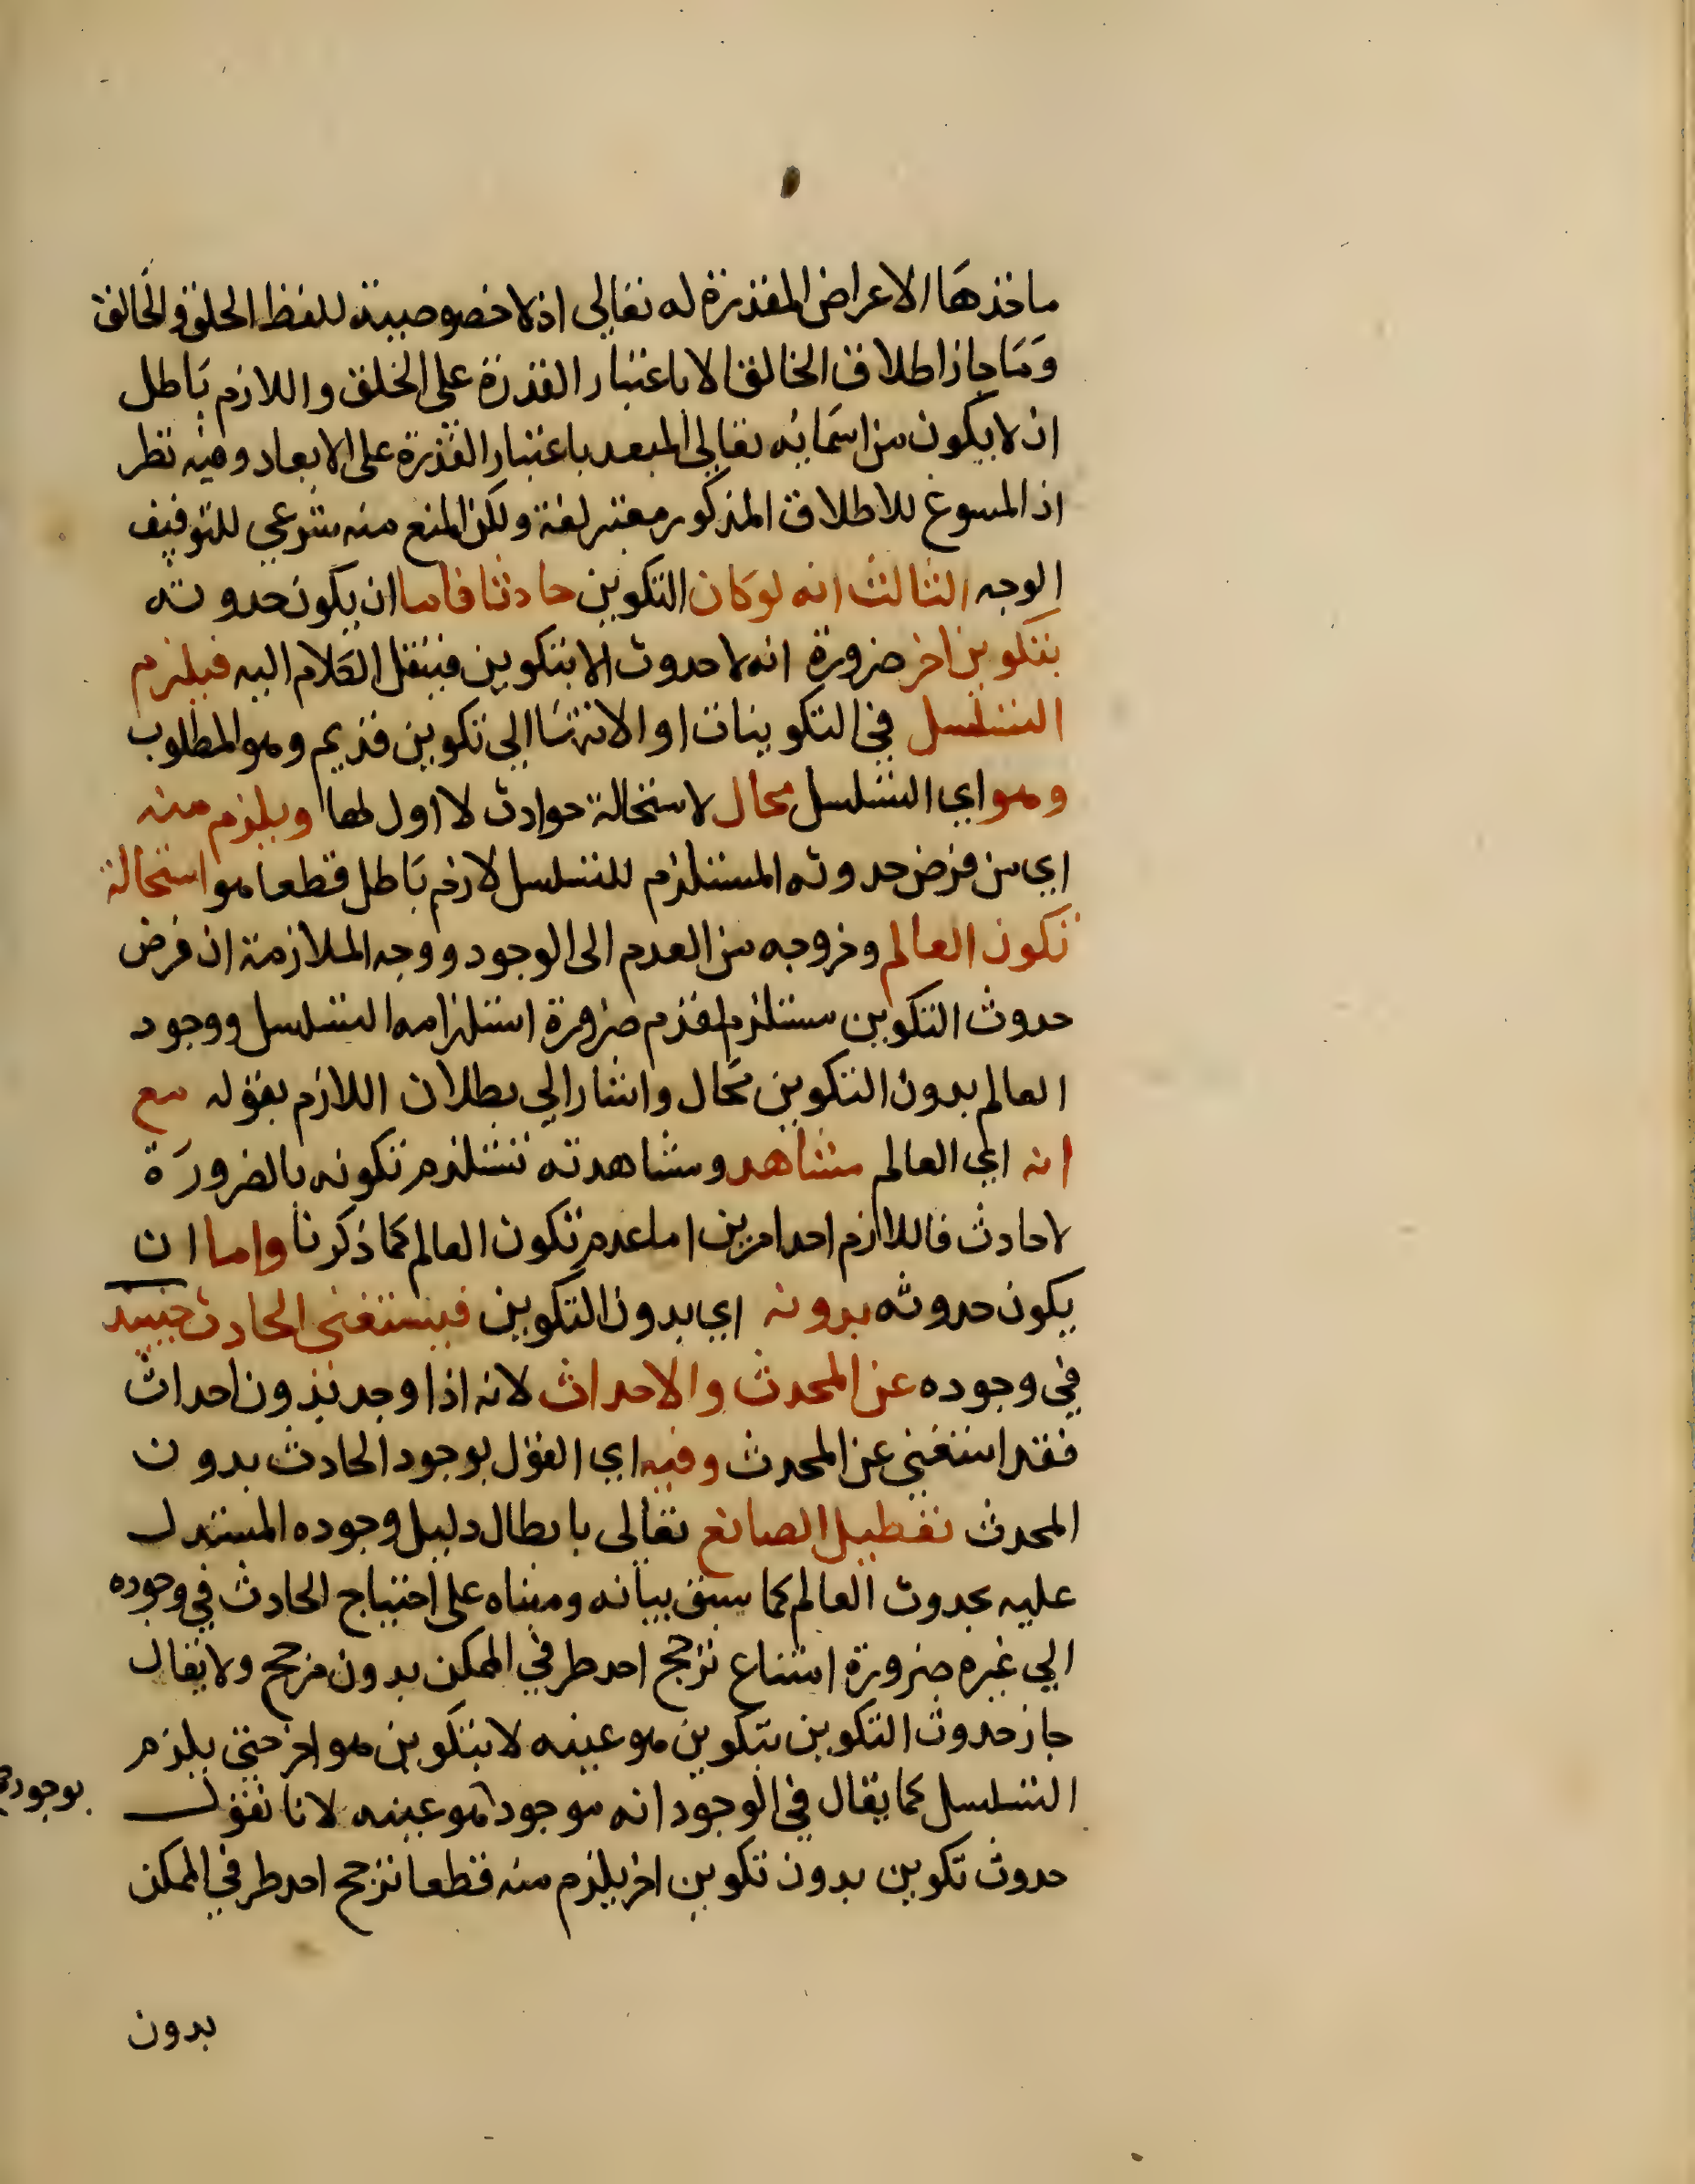 ماخذها الاعراض المقدرة له تعالى اذ لا خصوصية للفظ الخلق والخالق
وَمَا جاز اطلاق الخالق الا باعتبار القدرة على الخلق واللازم بَاطل
ان لا يكون من اسمَايُه تعالى المبعد باعتبار القدرة على الابعاد وفيه نظر
اذ المسوغ للاطلاق المذكور معتبر لغة ولكن المنع منه شرعي للتوقيف
الوجه الثالث انه لو كان التكوين حادثا فاما ان يكون حدوثه
بتكوين اخر ضرورة انه لا حدوث الا بتكوين فينتقل الكلام اليه فيلزم
التسلسل في التكوينات او الانتها الي تكوين قديم وهو المطلوب
وهو اي التسلسل محال لاستحالة حوادث لا اول لها ويلزم منه
اي من فرض حدوثه المستلزم للتسلسل لازم بَاطل قطعا هو استحالة
تكون العالم وخروجه من العدم الى الوجود ووجه الملازمة ان فرض
حدوث التكوين مستلزم لقدم ضرورة استلزامه التسلسل ووجود
العالم بدون التكوين محَال واشار الي بطلان اللازم بقوله مع
انه اي العالم مشاهد ومشاهدته تستلزم تكونه بالضرورَة
لا حادث فاللازم احد امرين اما عدم تكون العالم كما ذكرنا واما ان
يكون حدوثه بدونه اي بدون التكوين فيستغنى الحادث حينيد
في وجوده عن المحدث والاحداث لانه اذا وجد بدون احداث
فقد استغني عن المحدث وفيه اي القول بوجود الحادث بدون
المحدث تعطيل الصانع تعالى بابطال دليل وجوده المستدل
عليه بحدوث العالم كما سبق بيانه ومبناه على احتياج الحادث في وجوده
الي غيره ضرورة امتناع ترجح احد طرفي الممكن بدون مرجح ولا يقال
جاز حدوث التكوين بتكوين هو عينه لا بتكوين هو اخر حتى يلزم
التسلسل كما يقال في الوجود انه موجود هو عينه لانا نقول
بوجود
حدوث تكوين بدون تكوين اخر يلزم منه قطعا ترجح احد طرفي الممكن
بدون